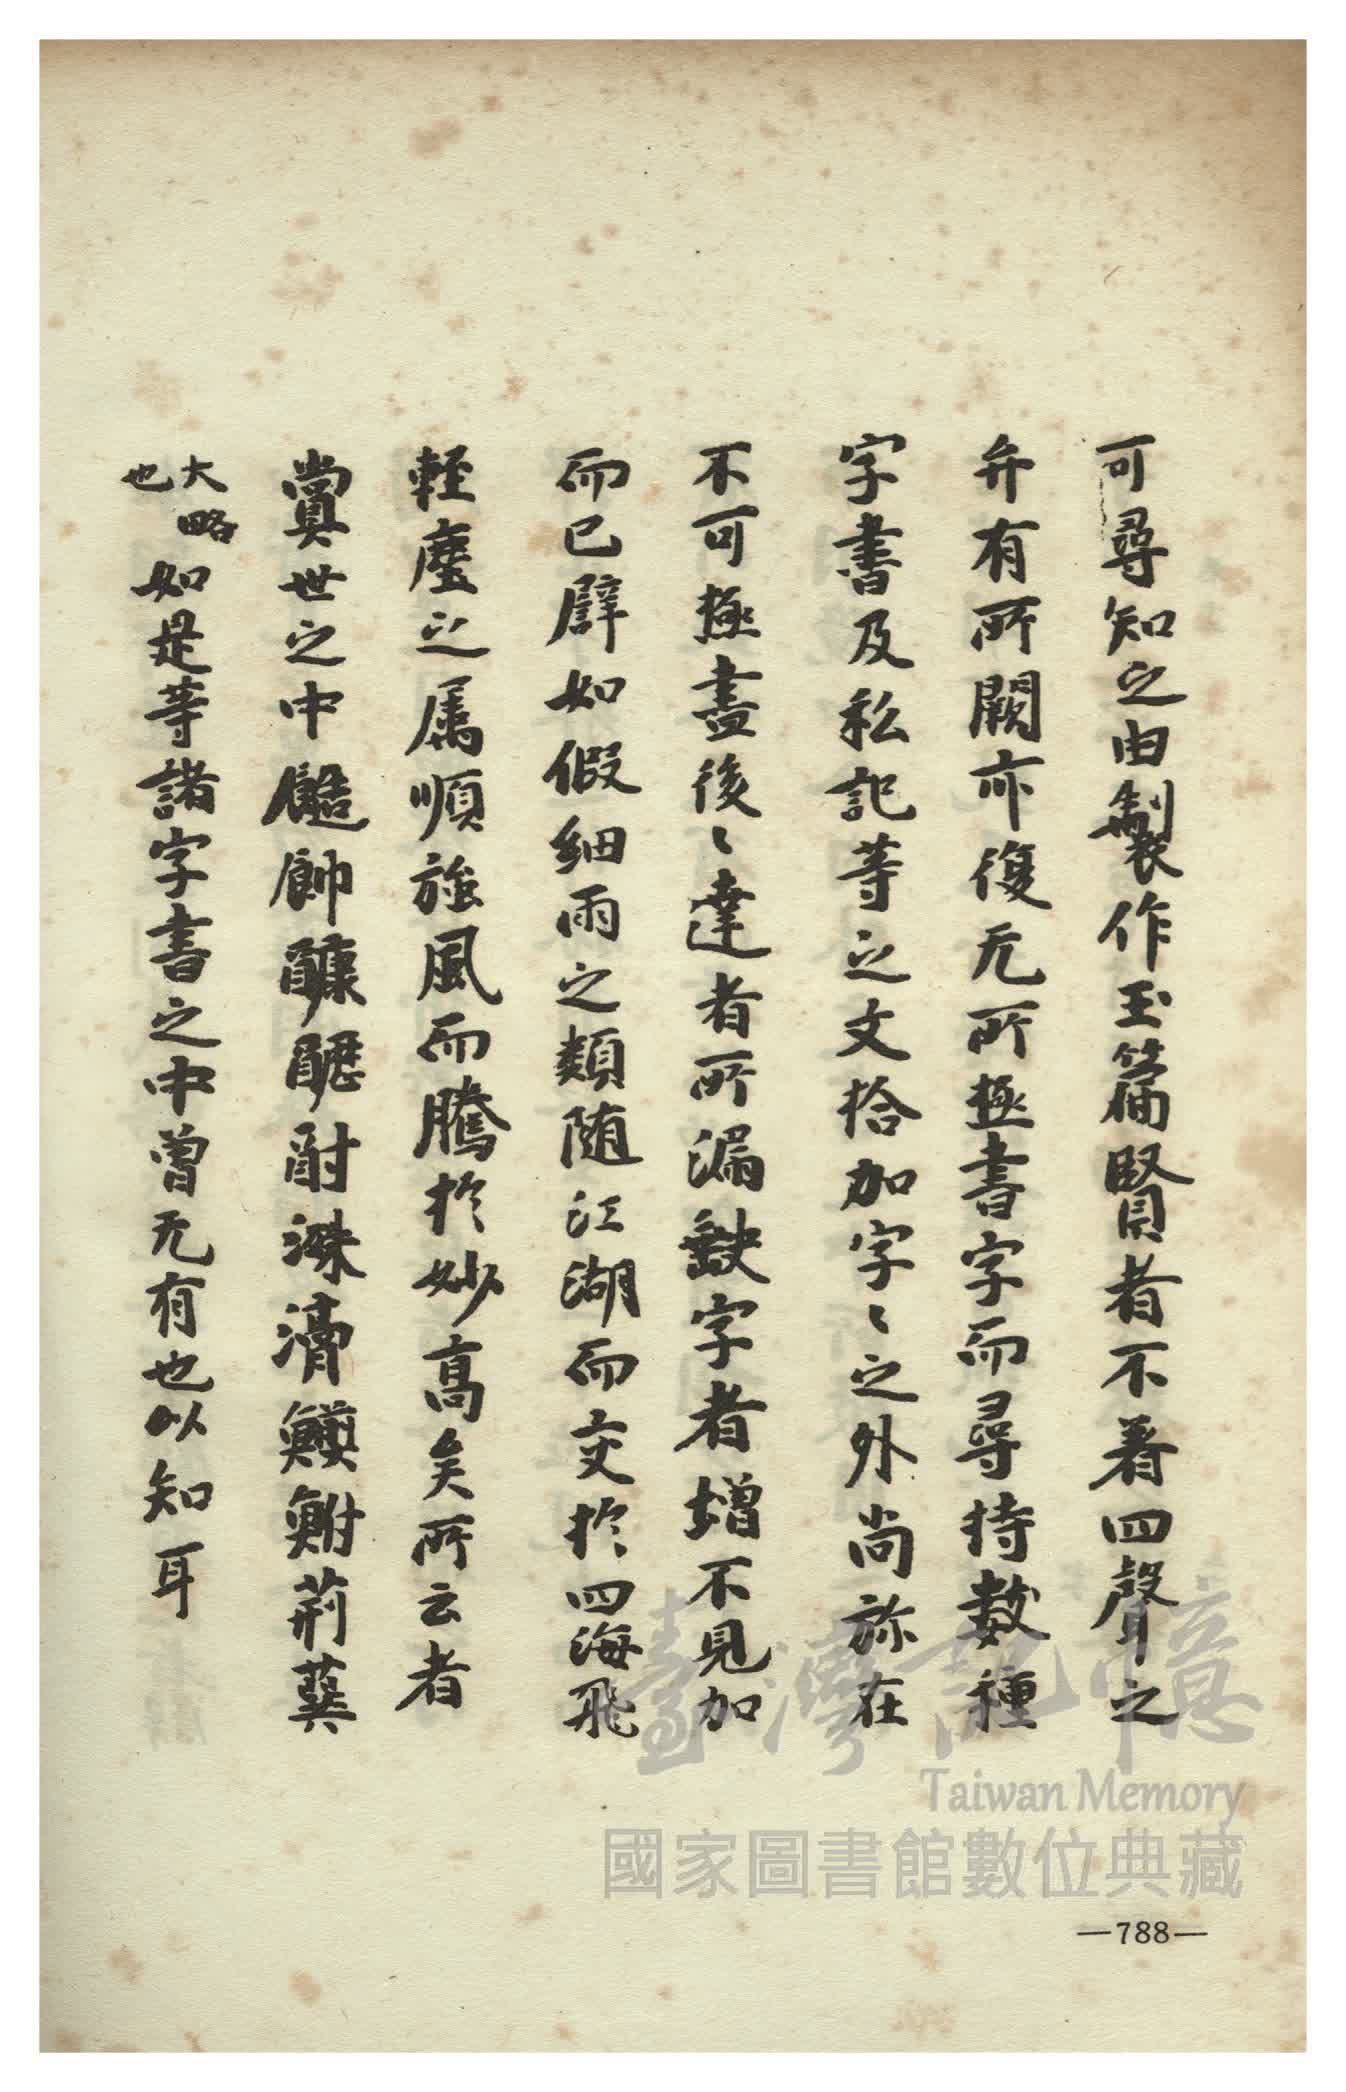 可尋知之由製作玉篇賢者不着四聲之
弁有所闕亦復无所極書字而尋持數種
字書及私記等之文拾加字〻之外尚旀在
不可極盡後〻達者所漏缺字者増不見加
而已辟如假細雨之類随江湖而交於四海飛
輕塵之属順旋風而騰於妙高矣所云者
世之中
大略
也
如是等諸字書之中曽无有也以知耳
臺灣記憶
Taiwan Memory
國家圖書館數位典藏
—788—